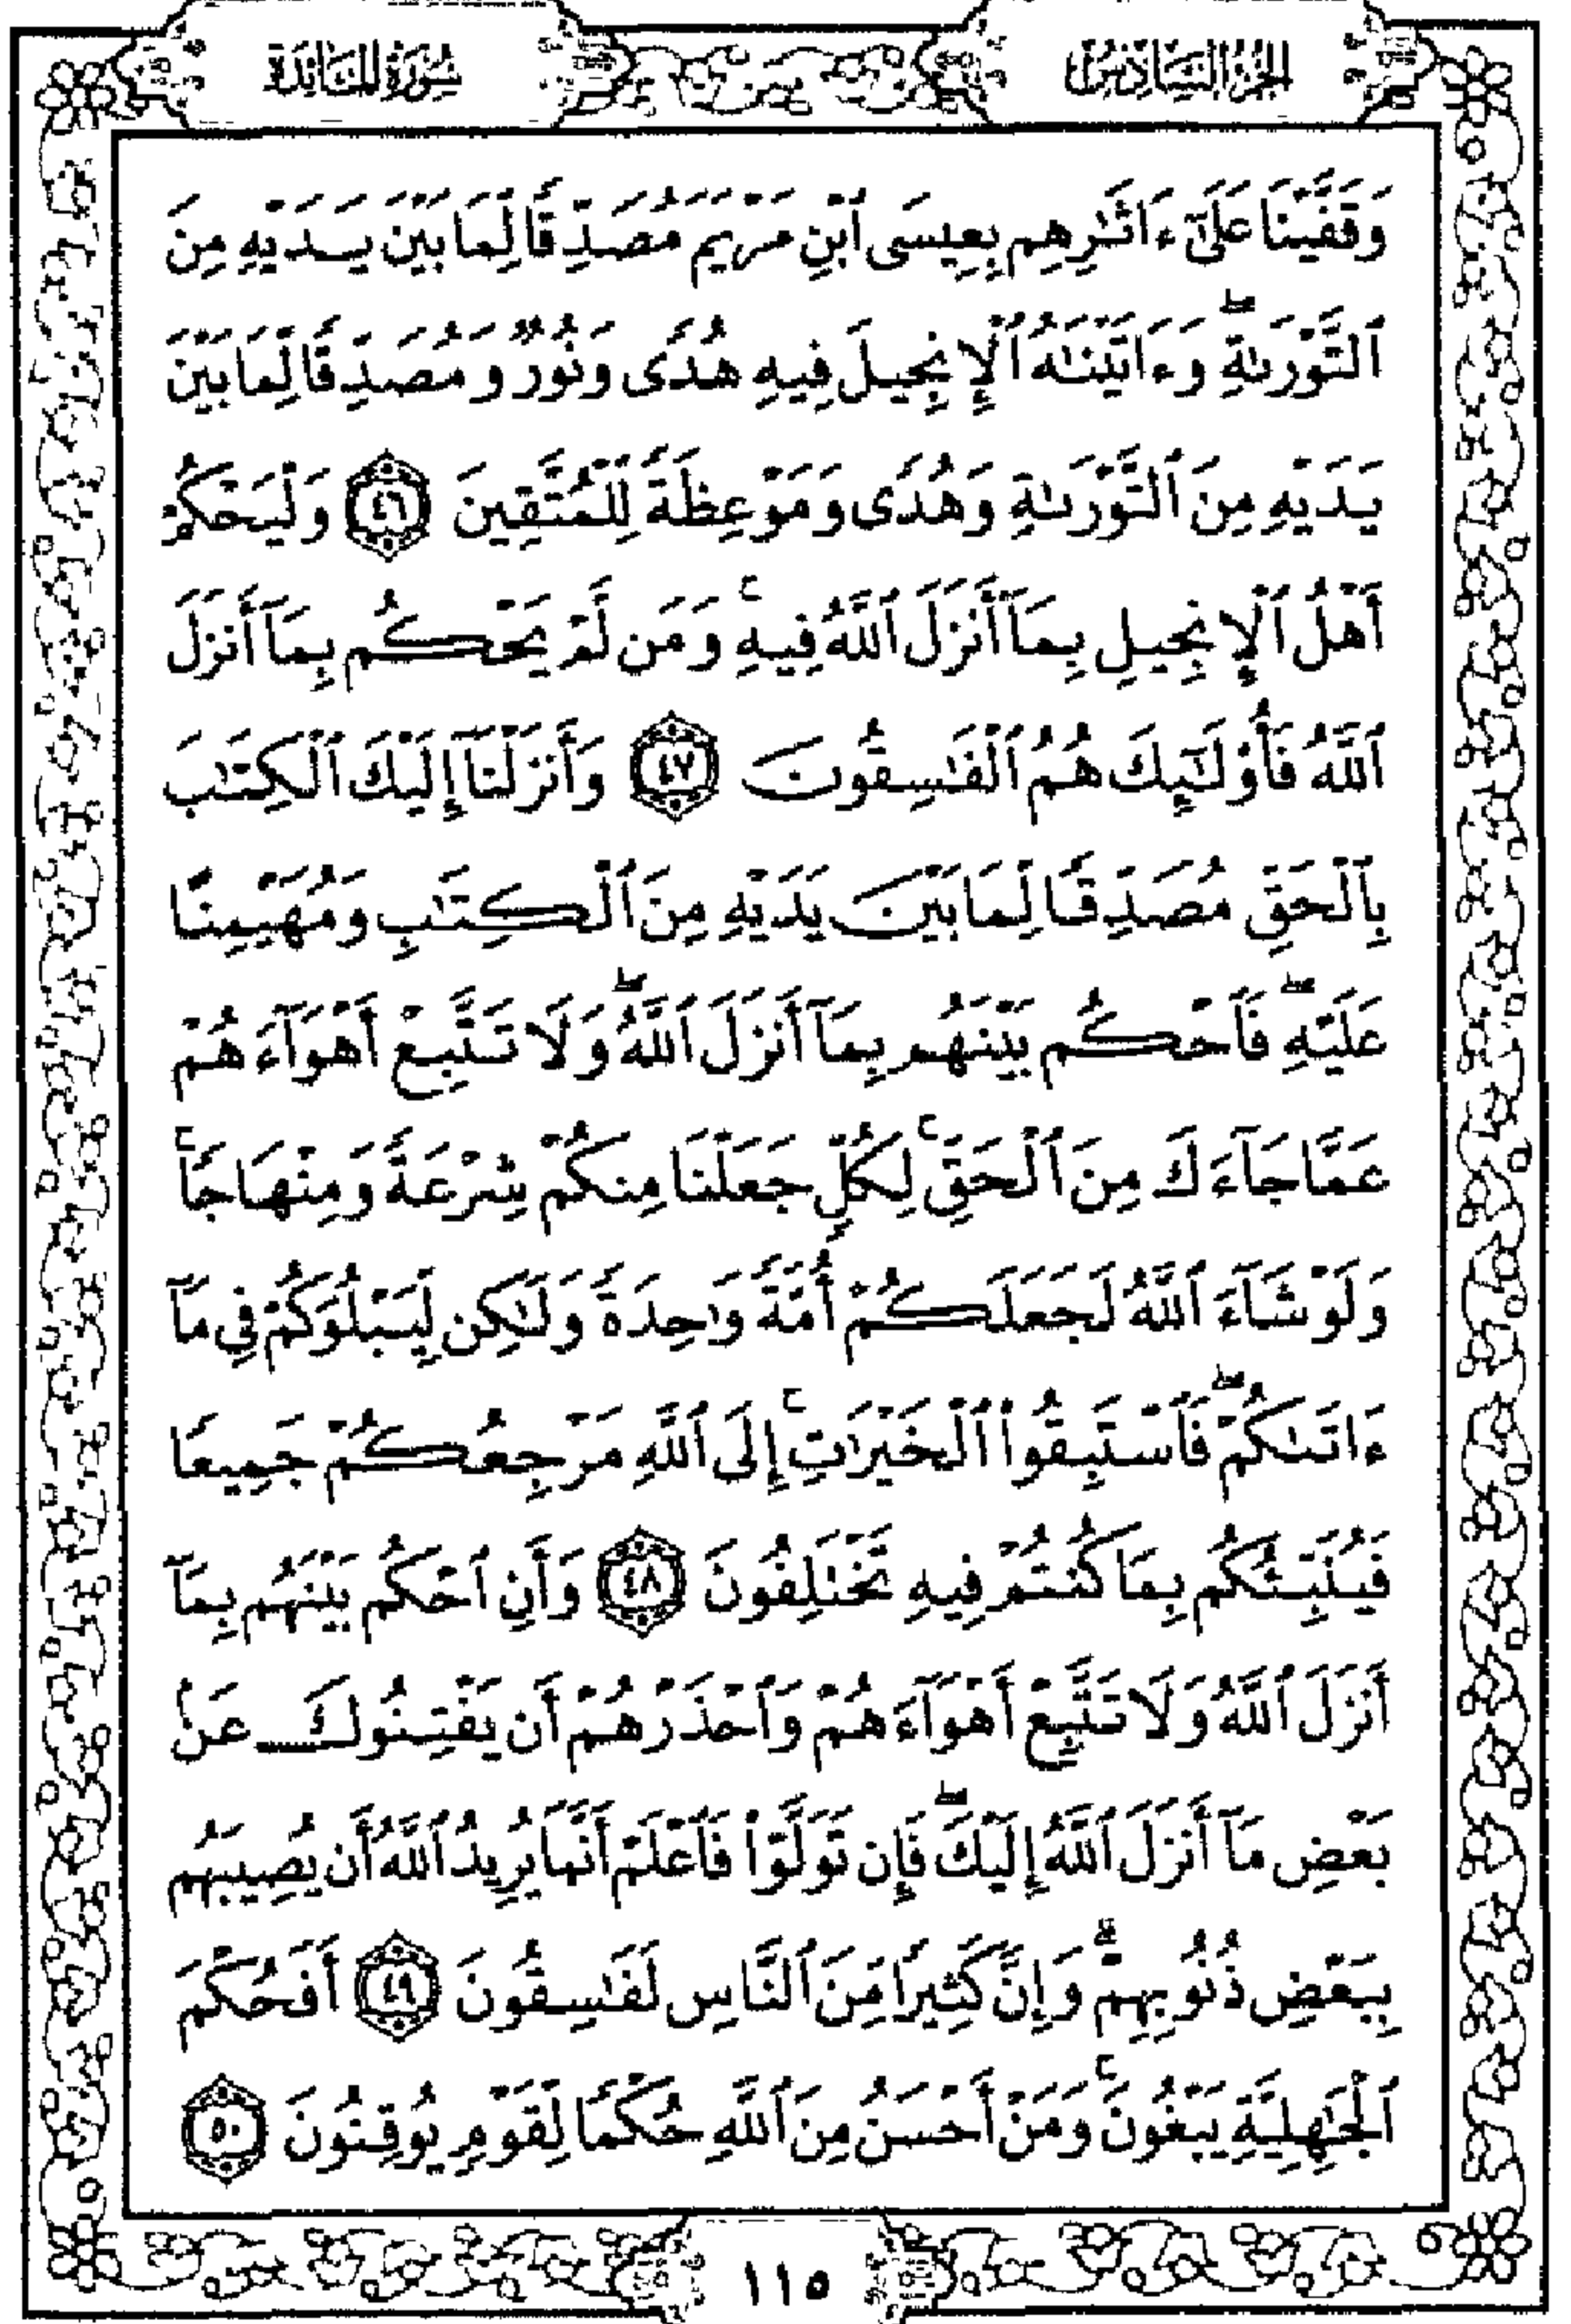 الجزء السادس
سورة المائدة
وَقَفَّيْنَا عَلَىٰٓ ءَاثَٰرِهِم بِعِيسَى ٱبْنِ مَرْيَمَ مُصَدِّقًا لِّمَا بَيْنَ يَدَيْهِ مِنَ
ٱلتَّوْرَىٰةِ ۖ وَءَاتَيْنَٰهُ ٱلْإِنجِيلَ فِيهِ هُدًى وَنُورٌ وَمُصَدِّقًا لِّمَا بَيْنَ
يَدَيْهِ مِنَ ٱلتَّوْرَىٰةِ وَهُدًى وَمَوْعِظَةً لِّلْمُتَّقِينَ ٤٦ وَلْيَحْكُمْ
أَهْلُ ٱلْإِنجِيلِ بِمَآ أَنزَلَ ٱللَّهُ فِيهِ ۚ وَمَن لَّمْ يَحْكُم بِمَآ أَنزَلَ
ٱللَّهُ فَأُو۟لَٰٓئِكَ هُمُ ٱلْفَٰسِقُونَ ٤٧ وَأَنزَلْنَآ إِلَيْكَ ٱلْكِتَٰبَ
بِٱلْحَقِّ مُصَدِّقًا لِّمَا بَيْنَ يَدَيْهِ مِنَ ٱلْكِتَٰبِ وَمُهَيْمِنًا
عَلَيْهِ ۖ فَٱحْكُم بَيْنَهُم بِمَآ أَنزَلَ ٱللَّهُ ۖ وَلَا تَتَّبِعْ أَهْوَآءَهُمْ
عَمَّا جَآءَكَ مِنَ ٱلْحَقِّ ۚ لِكُلٍّ جَعَلْنَا مِنكُمْ شِرْعَةً وَمِنْهَاجًا ۚ
وَلَوْ شَآءَ ٱللَّهُ لَجَعَلَكُمْ أُمَّةً وَٰحِدَةً وَلَٰكِن لِّيَبْلُوَكُمْ فِى مَآ
ءَاتَىٰكُمْ ۖ فَٱسْتَبِقُوا۟ ٱلْخَيْرَٰتِ ۚ إِلَى ٱللَّهِ مَرْجِعُكُمْ جَمِيعًا
فَيُنَبِّئُكُم بِمَا كُنتُمْ فِيهِ تَخْتَلِفُونَ ٤٨ وَأَنِ ٱحْكُم بَيْنَهُم بِمَآ
أَنزَلَ ٱللَّهُ وَلَا تَتَّبِعْ أَهْوَآءَهُمْ وَٱحْذَرْهُمْ أَن يَفْتِنُوكَ عَنۢ
بَعْضِ مَآ أَنزَلَ ٱللَّهُ إِلَيْكَ ۖ فَإِن تَوَلَّوْا۟ فَٱعْلَمْ أَنَّمَا يُرِيدُ ٱللَّهُ أَن يُصِيبَهُم
بِبَعْضِ ذُنُوبِهِمْ ۗ وَإِنَّ كَثِيرًا مِّنَ ٱلنَّاسِ لَفَٰسِقُونَ ٤٩ أَفَحُكْمَ
ٱلْجَٰهِلِيَّةِ يَبْغُونَ ۚ وَمَنْ أَحْسَنُ مِنَ ٱللَّهِ حُكْمًا لِّقَوْمٍ يُوقِنُونَ ٥٠
١١٥